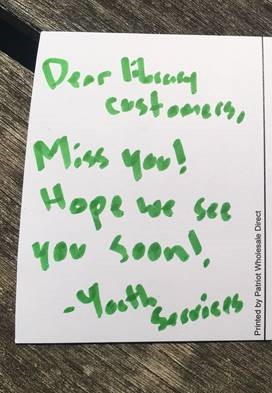 Dear library
customers,
Miss you!
Hope we see
you soon!
-Youth
Services
Printed by Patriot Wholesale Direct